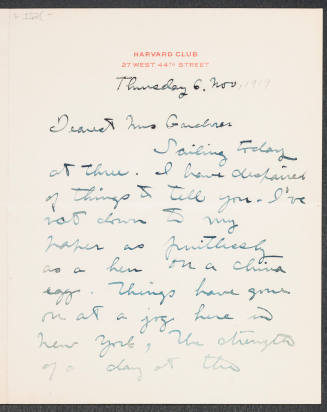 HARVARD CLUB
27 WEST 44TH STREET
Thursday 6. Nov, 1919
Dearest Mrs Gardner
Sailing today
at three. I have despaired
of things to tell you. I've
sat down to my
paper as fruitlessly
as a hen on a china
egg. Things have gone
on at a jog here in
New York, the strength
of a day at the